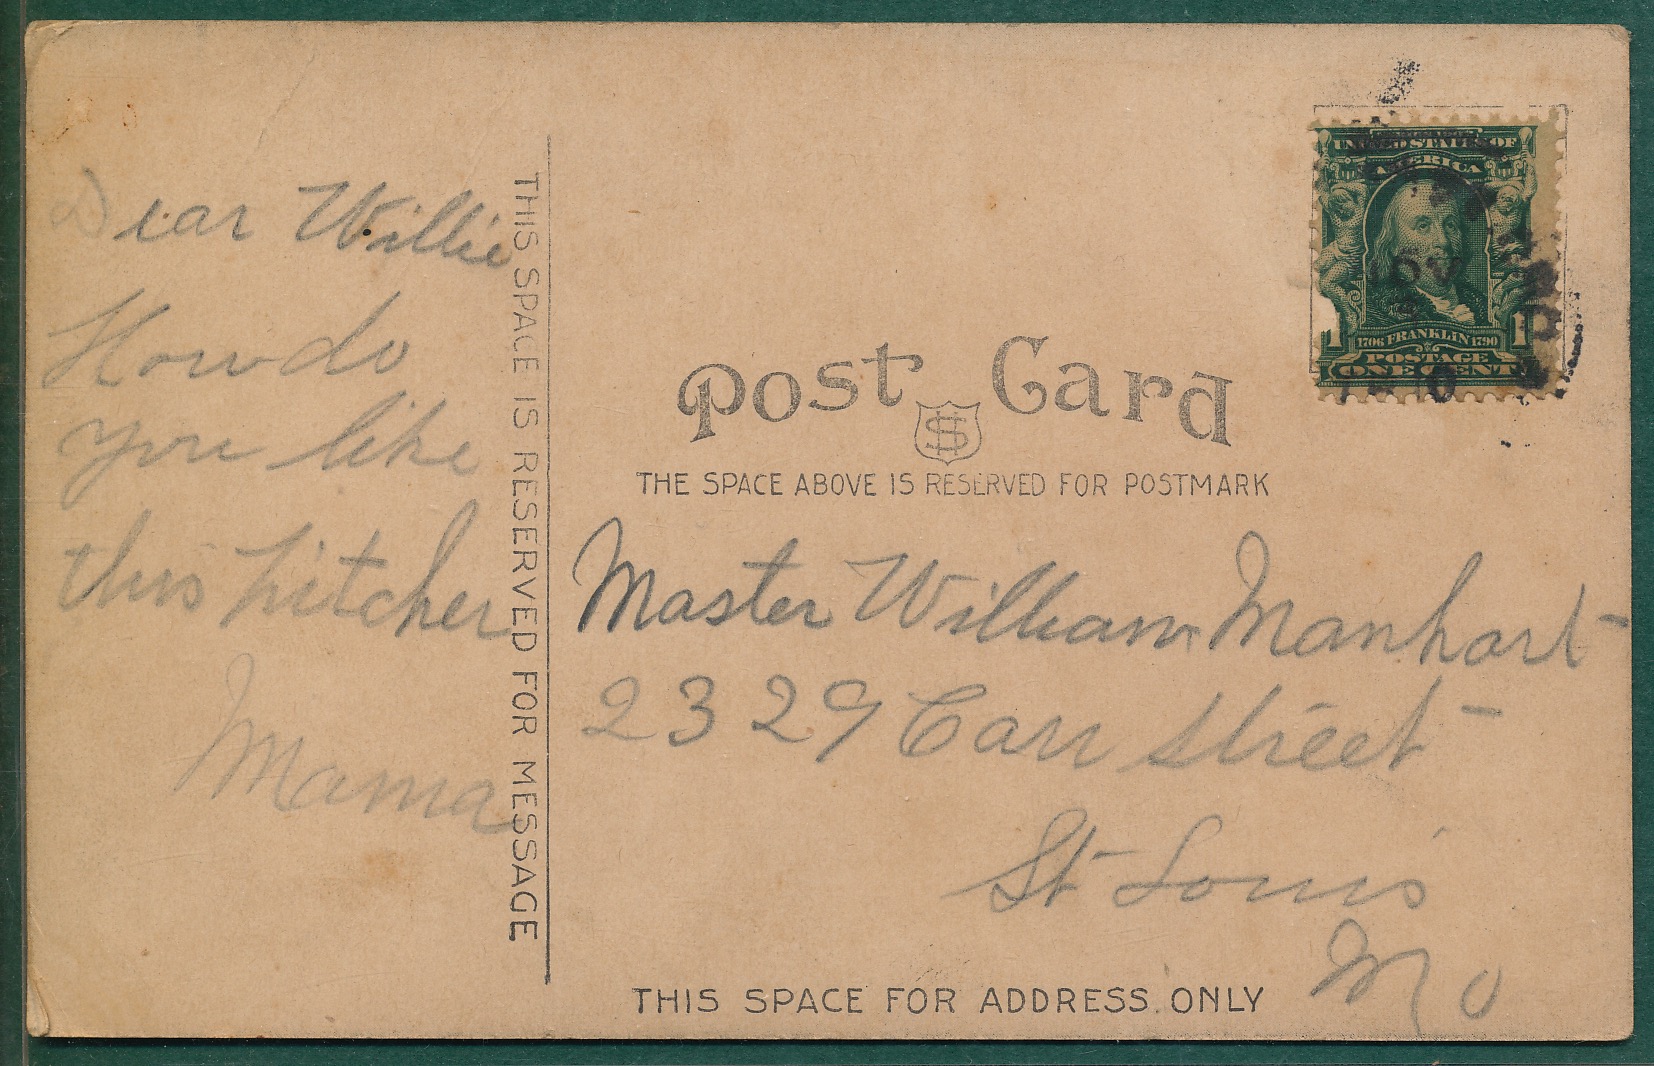 Dear Willie
How do
you like
this pitcher
Mama
THIS SPACE IS RESERVED FOR MESSAGE
UNITED STATES OF
AMERICA
1 1706 FRANKLIN 1790 1
POSTAGE
ONE CENT
Post Card
THE SPACE ABOVE IS RESERVED FOR POSTMARK
Master William Manhart
2329 Carr street
St Louis
Mo
THIS SPACE FOR ADDRESS ONLY